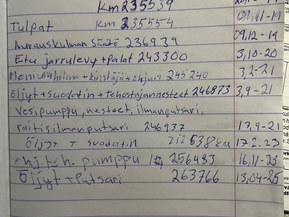 km 235539
Tulpat km 235554 09.11-19
Aurauskulman Säätö 236939 09.12-19
Etu jarrulevyt + palat 243300 3.10-20
245240 3.2-21
Öljyt + suodatin + Tehostajannesteet 246873 3.9-21
Vesipumppu, nesteet, ilmanputsari,
raitisilmanputsari 246937 17.9-21
Öljyt + suodatin 538 km 17.2.23
pumppu 256483 16.11-23
Öljyt + Putsari 263766 13.04-25